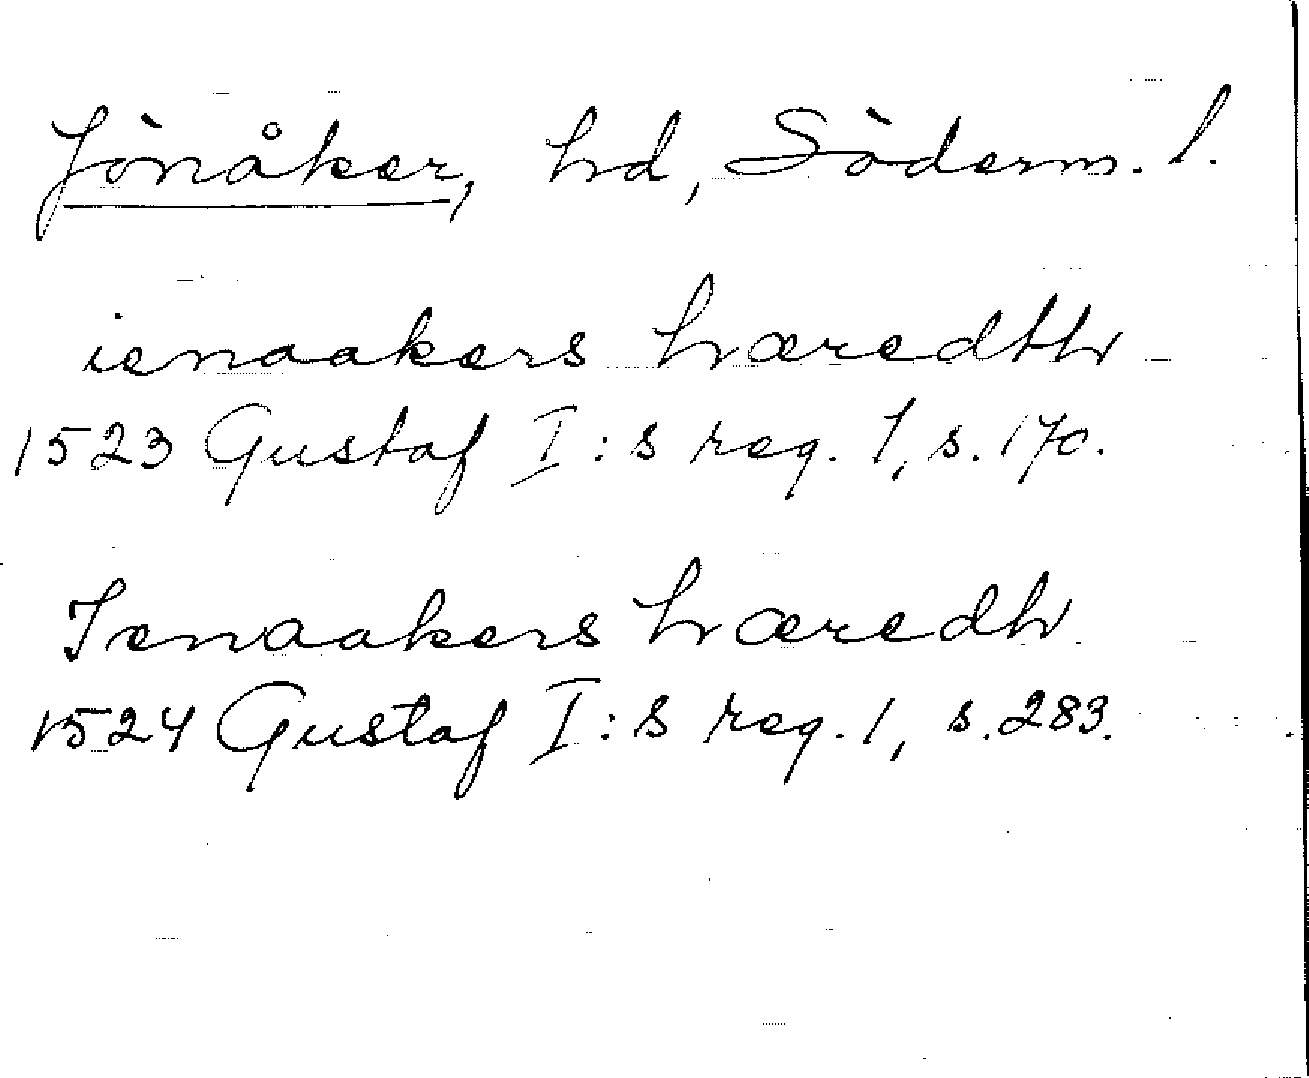 Jönåker, hd, Söderm. l.
ienaakers hæredth
1523 Gustaf I:s reg. 1, s. 170.
Ienaakers hæredh
1524 Gustaf I:s reg. 1, s. 283.